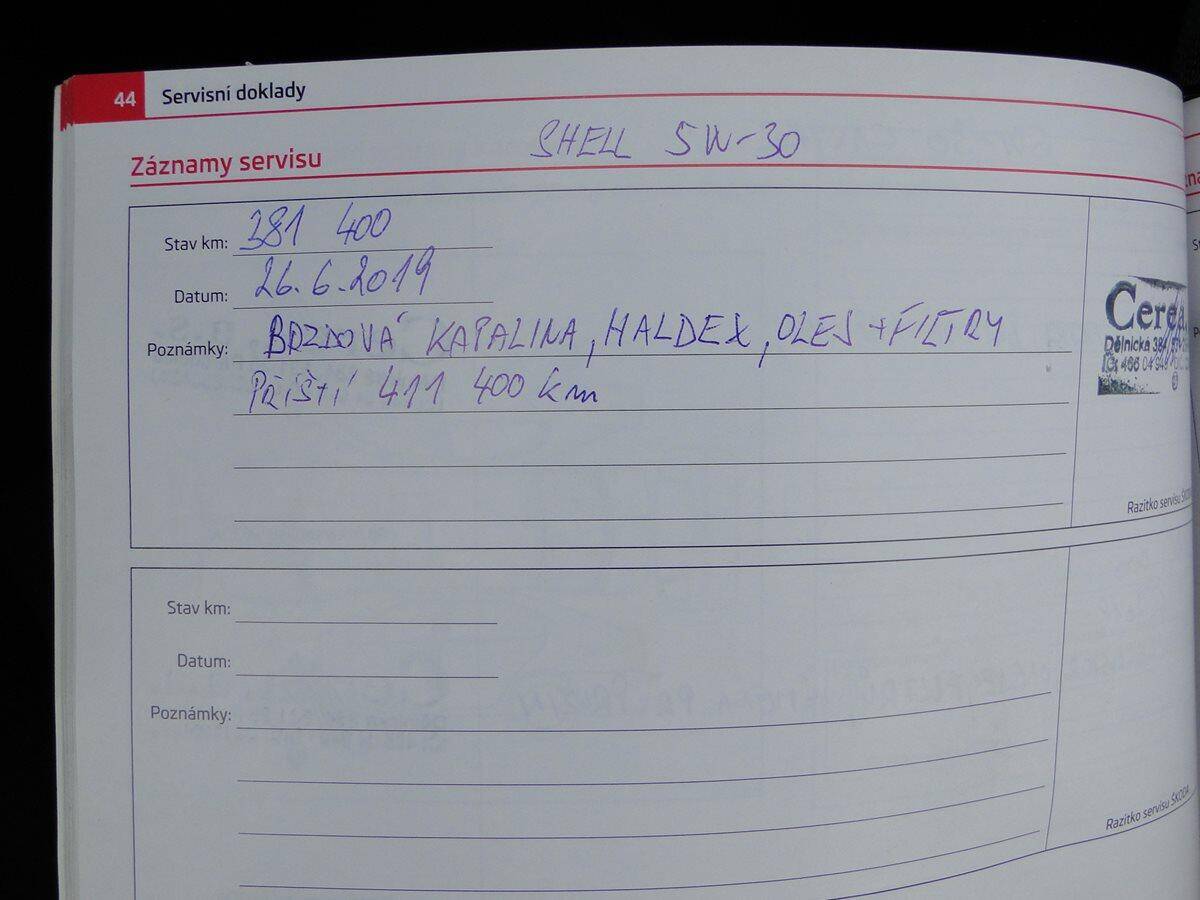 44 Servisní doklady
SHELL 5W-30
Záznamy servisu
Stav km: 381 400
Datum: 26.6.2019
Poznámky: BRZDOVÁ KAPALINA, HALDEX, OLEJ + FILTRY
PŘÍŠTÍ 411 400 km
Dělnická
Razítko servisu
Stav km:
Datum:
Poznámky:
Razítko servisu ŠKODA